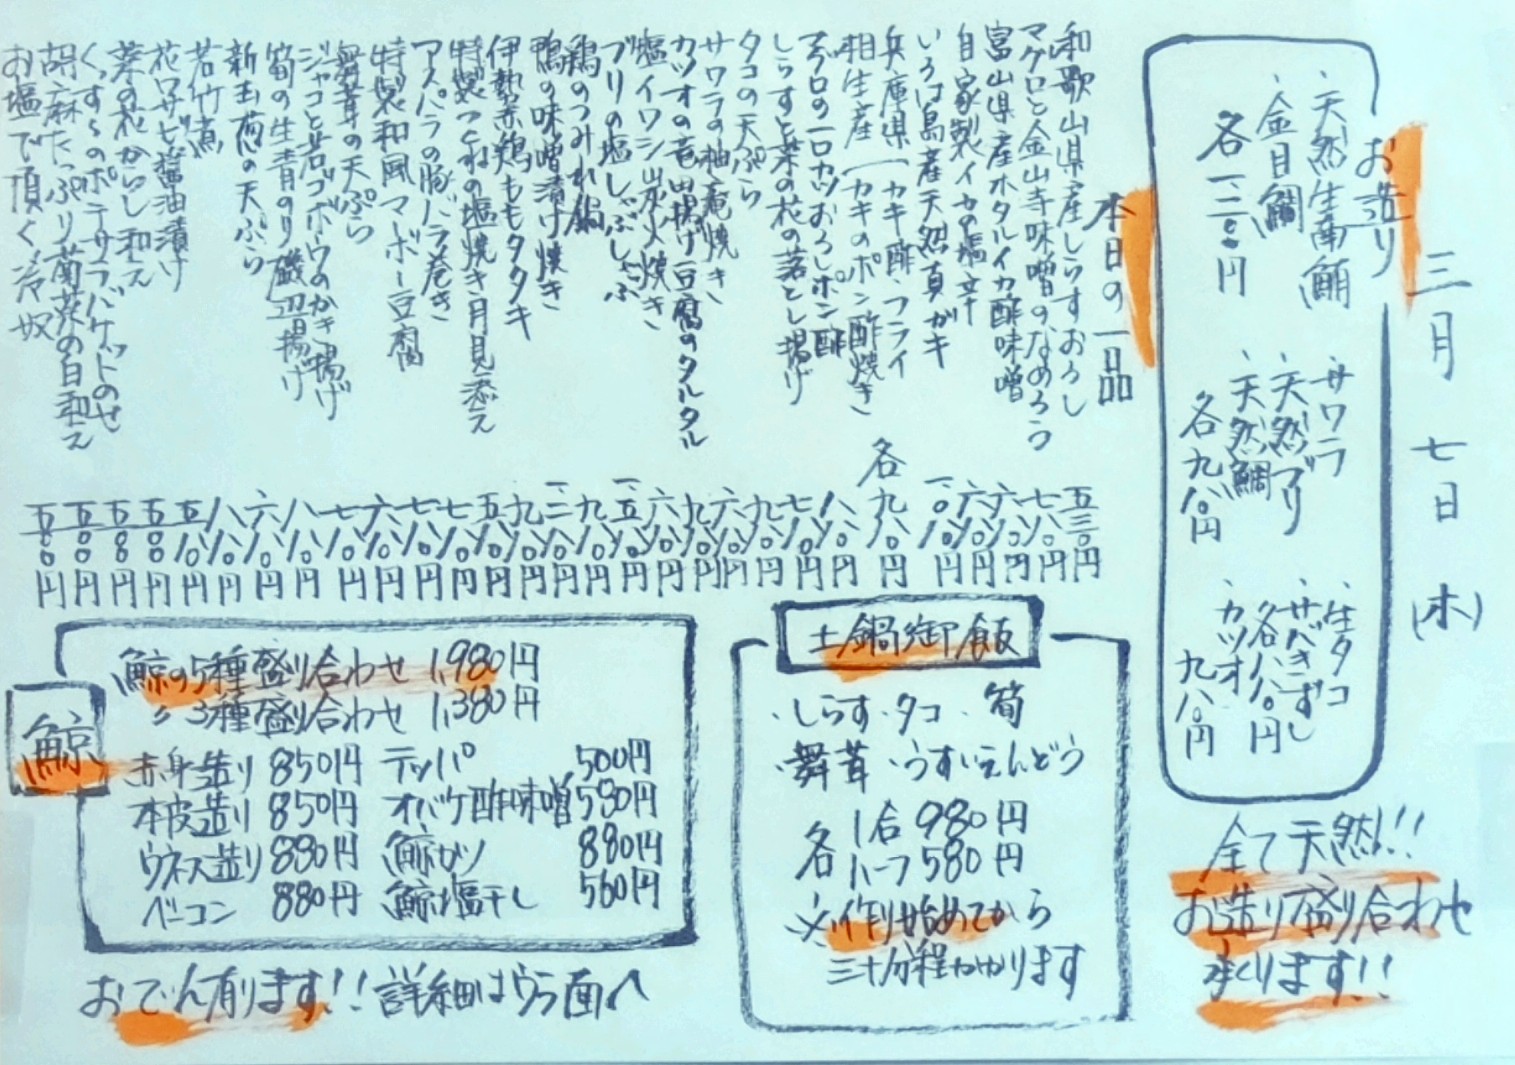 三月七日(木)
お造り
・天然生南鮪
・金目鯛
各一二〇〇円
・サワラ
・天然ブリ
・天然鯛
各九八〇円
・生タコ
・サバきずし
各八八〇円
・カツオ
九八〇円
全て天然!!
お造り盛り合わせ
承ります!!
本日の一品
和歌山県産しらすおろし
マグロと金山寺味噌のなめろう
富山県産ホタルイカ酢味噌
自家製イカの塩辛
いろは島産天然真ガキ
兵庫県 カキ酢・フライ
相生産 カキのポン酢焼き
各九八〇円
マグロの一口カツおろしポン酢
しらすと菜の花の落とし揚げ
タコの天ぷら
サワラの柚庵焼き
カツオの竜田揚げ豆腐のタルタル
塩イワシ炭火焼き
ブリの塩しゃぶしゃぶ
鶏のつみれ鍋
鴨の味噌漬け焼き
伊勢赤鶏ももタタキ
特製つくねの塩焼き月見添え
アスパラの豚バラ巻き
特製和風マーボー豆腐
舞茸の天ぷら
ジャコと若ゴボウのかき揚げ
筍の生青のり磯辺揚げ
新玉葱の天ぷら
若竹煮
花ワサビ醤油漬け
菜の花からし和え
くっすーのポテサラバケットのせ
胡麻たっぷり菊菜の白和え
お塩で頂く冷奴
土鍋御飯
・しらす・タコ・筍
・舞茸・うすいえんどう
各 1合 980円
ハーフ 580円
※作り始めてから
三十分程かかります
鯨
鯨の5種盛り合わせ 1,980円
〃 3種盛り合わせ 1,380円
赤身造り 850円 テッパ 500円
本皮造り 850円 オバケ酢味噌 580円
ウネス造り 880円 鯨カツ 880円
ベーコン 880円 鯨塩干し 560円
おでん有ります!!詳細はウラ面へ